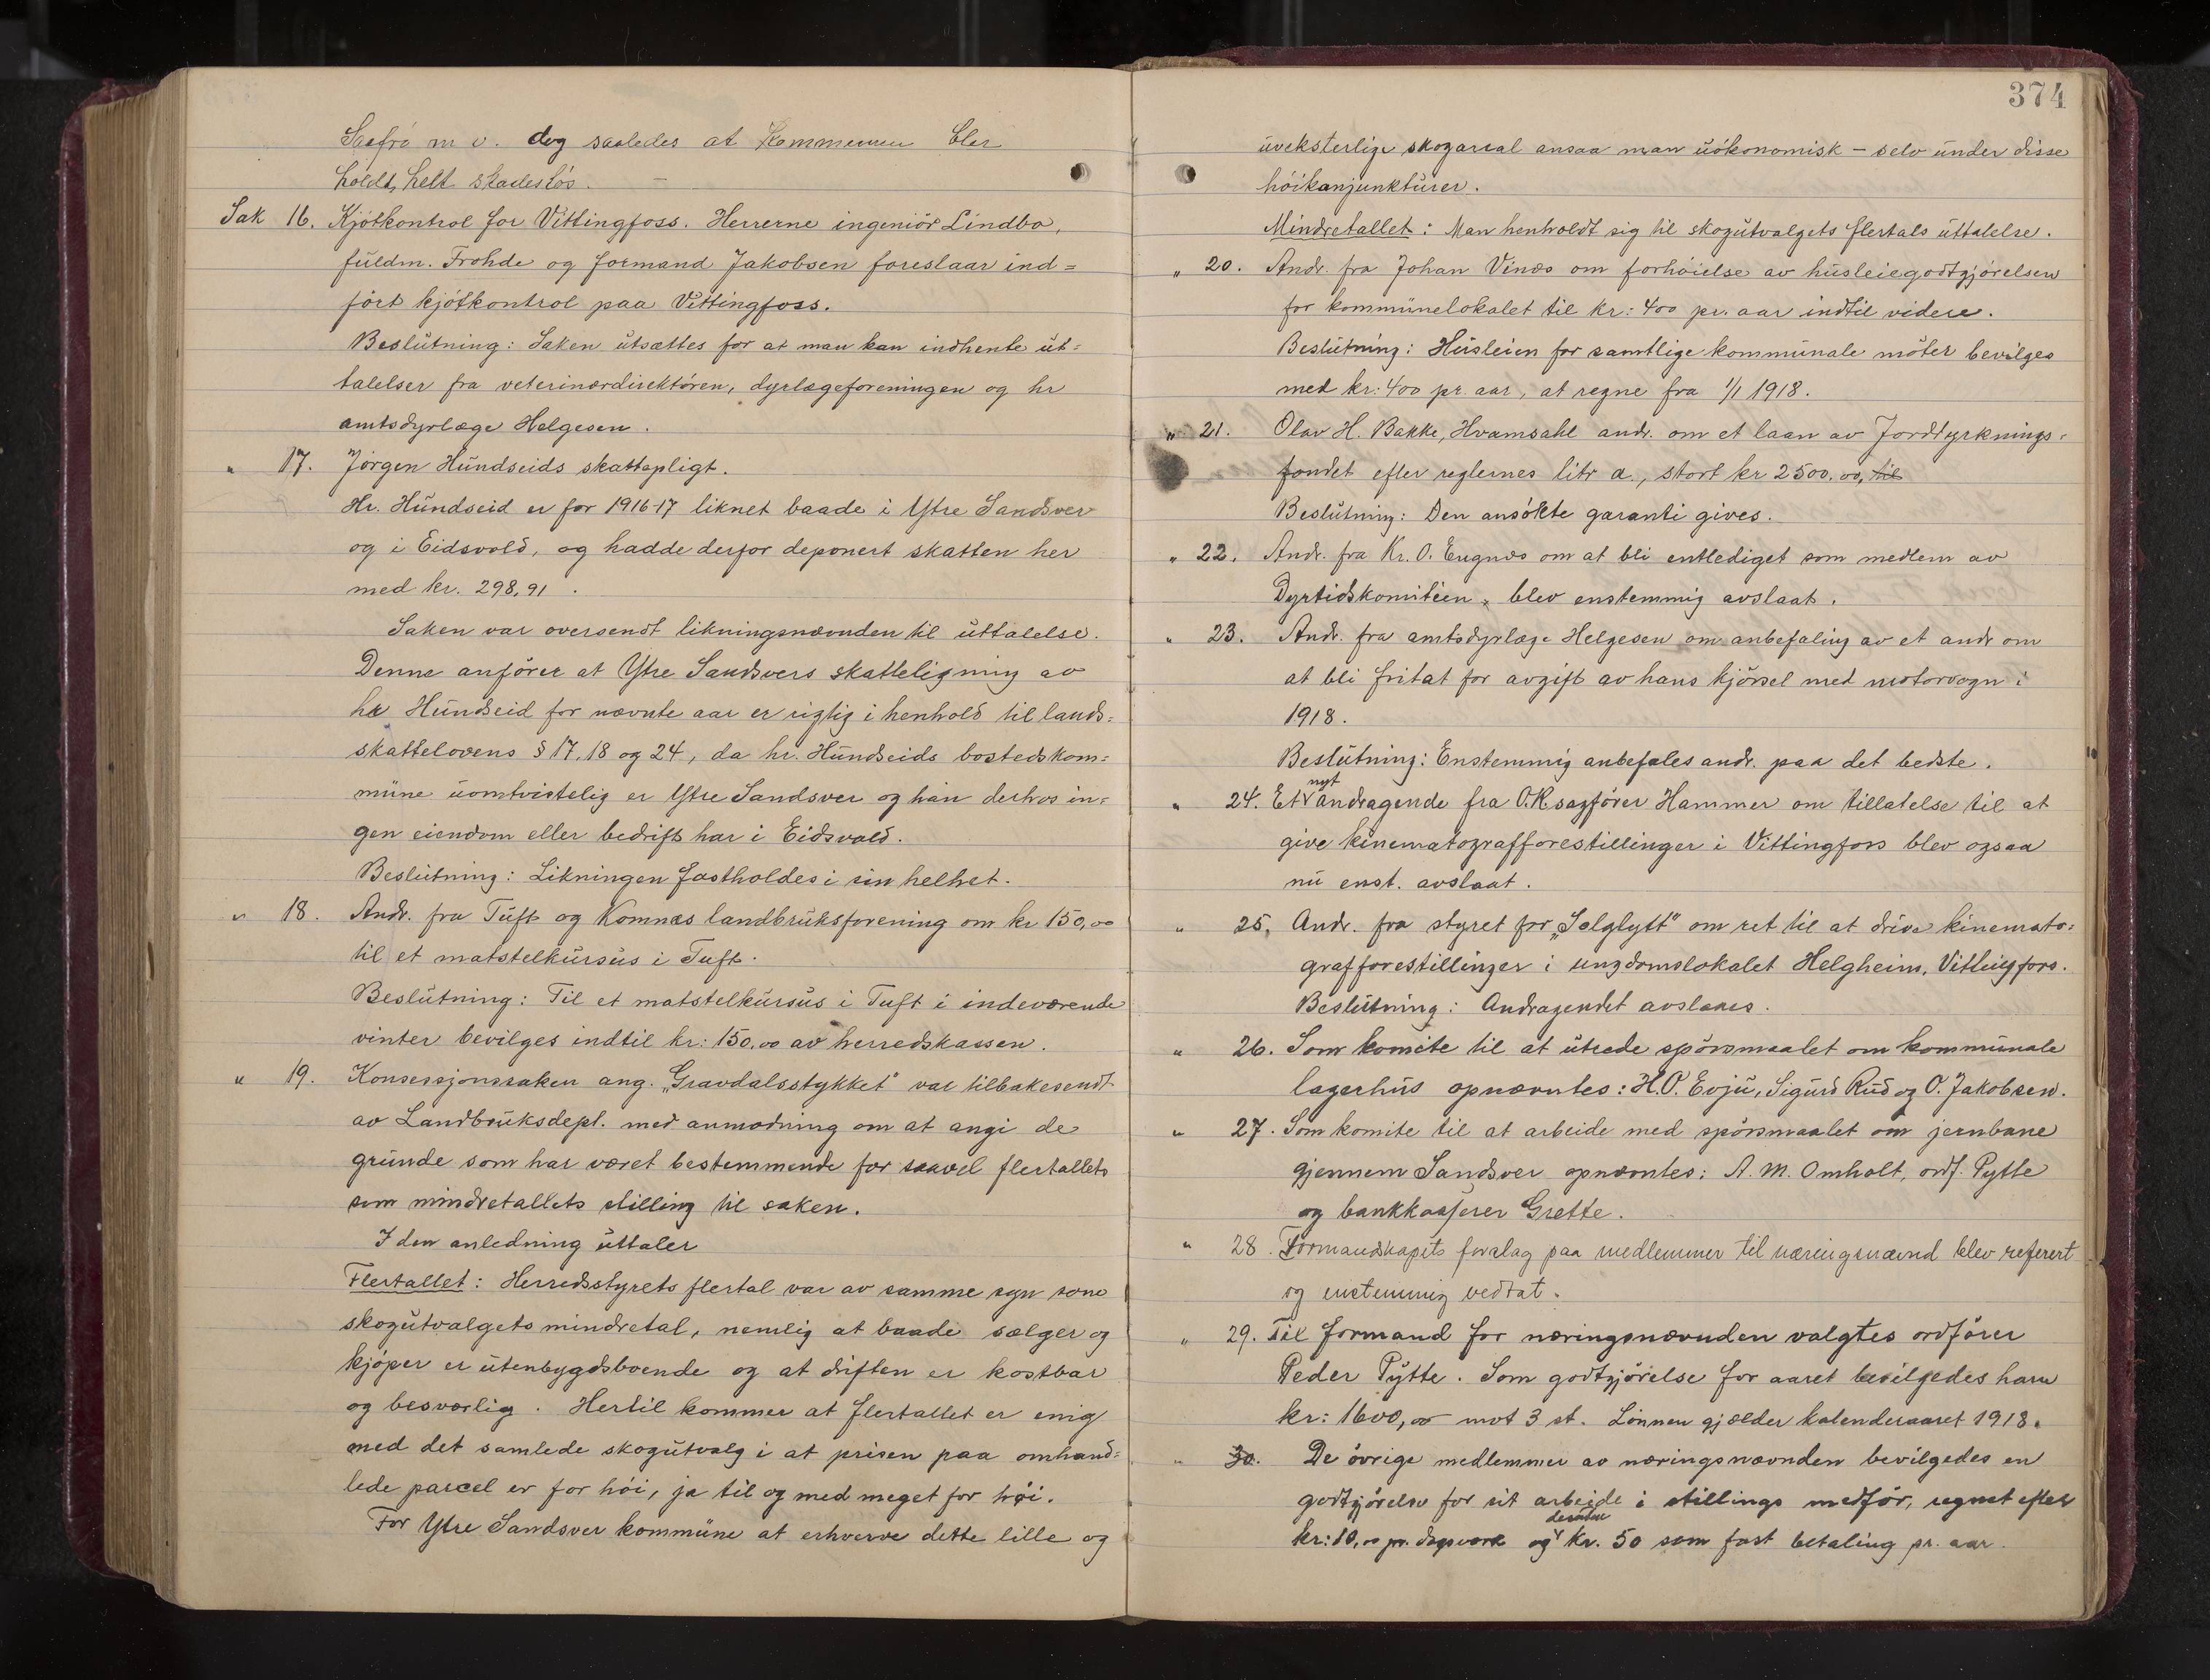 Saafrø m v. dog saaledes at Kommunen blir
holdt helt skadesløs. —
Sak 16. Kjøtkontrol for Vittingfoss. Herrerne ingeniør Lindbo,
fuldm. Frohde og formand Jakobsen foreslaar ind=
ført kjøtkontrol paa Vittingfoss.
Beslutning: Saken utsættes for at man kan indhente ut=
talelser fra veterinærdirektøren, dyrlægeforeningen og hr
amtsdyrlæge Helgesen.
" 17. Jørgen Hundseids skattepligt.
Hr. Hundseid er for 1916-17 liknet baade i Ytre Sandsver
og i Eidsvold, og hadde derfor deponert skatten her
med kr. 298,91.
Saken var oversendt likningsnævnden til uttalelse.
Denne anfører at Ytre Sandsvers skatteligning av
hr Hundseid for nævnte aar er rigtig i henhold til lands=
skattelovens § 17, 18 og 24, da hr. Hundseids bostedskom=
mune uomtvistelig er Ytre Sandsver og han derhos in=
gen eiendom eller bedrift har i Eidsvold.
Beslutning: Likningen fastholdes i sin helhet.
" 18. Andr. fra Tuft og Komnæs landbruksforening om kr 150,00
til et matstelkursus i Tuft.
Beslutning: Til et matstelkursus i Tuft i indeværende
vinter bevilges indtil kr: 150,00 av herredskassen.
" 19. Konsessjonssaken ang. „Gravdalsstykket" var tilbakesendt
av Landbruksdept. med anmodning om at angi de
grunde som har været bestemmende for saavel flertallets
som mindretallets stilling til saken.
I den anledning uttaler
Flertallet: Herredsstyrets flertal var av samme syn som
skogutvalgets mindretal, nemlig at baade sælger og
kjøper er utenbygdsboende og at driften er kostbar
og besværlig. Hertil kommer at flertallet er enig
med det samlede skogutvalg i at prisen paa omhand=
lede parcel er for høi, ja til og med meget for høi.
For Ytre Sandsver kommune at erhverve dette lille og
374
uveksterlige skogareal ansaa man uøkonomisk – selv under disse
høikanjunkturer.
Mindretallet: Man henholdt sig til skogutvalgets flertals uttalelse.
" 20. Andr. fra Johan Vinæs om forhøielse av husleiegodtgjørelsen
for kommunelokalet til kr: 400 pr. aar indtil videre.
Beslutning: Husleien for samtlige kommunale møter bevilges
med kr: 400 pr. aar, at regne fra 1/1 1918.
" 21. Olav H. Bakke, Hvamsahl andr. om et laan av Jorddyrknings=
fondet efter reglernes litr a., stort kr 2500.00, til
Beslutning: Den ansøkte garanti gives.
" 22. Andr. fra Kr. O. Engnæs om at bli entlediget som medlem av
Dyrtidskomitéen, blev enstemmig avslaat.
" 23. Andr. fra amtsdyrlæge Helgesen om anbefaling av et andr om
at bli fritat for avgift av hans kjørsel med motorvogn i
1918.
Beslutning: Enstemmig anbefales andr. paa det bedste.
" 24. Et nyt andragende fra O.R.sagfører Hammer om tillatelse til at
give kinematografforestillinger i Vittingfoss blev ogsaa
nu enst. avslaat.
" 25. Andr. fra styret for „Solglytt" om ret til at drive kinemato=
grafforestillinger i ungdomslokalet Helgheim, Vittingfoss.
Beslutning: Andragendet avslaaes.
" 26. Som komite til at utrede spørsmaalet om kommunale
lagerhus opnævntes: H.O. Evju, Sigurd Rud og O. Jakobsen.
" 27. Som komite til at arbeide med spørsmaalet om jernbane
gjennem Sandsver opnævntes: A. M. Omholt, ordf. Pytte
og bankkasserer Grette.
" 28. Formandskapets forslag paa medlemmer til næringsnævnd blev referert
og enstemmig vedtat.
" 29. Til formand for næringsnævnden valgtes ordfører
Peder Pytte. Som godtgjørelse for aaret bevilgedes ham
kr: 1600,00 mot 3 st. Lønnen gjælder kalenderaaret 1918.
" 30. De øvrige medlemmer av næringsnævnden bevilgedes en
godtgjørelse for sit arbeide i stillings medfør, regnet efter
kr: 10,00 pr. dagsverk og desuden kr. 50 som fast betaling pr. aar.